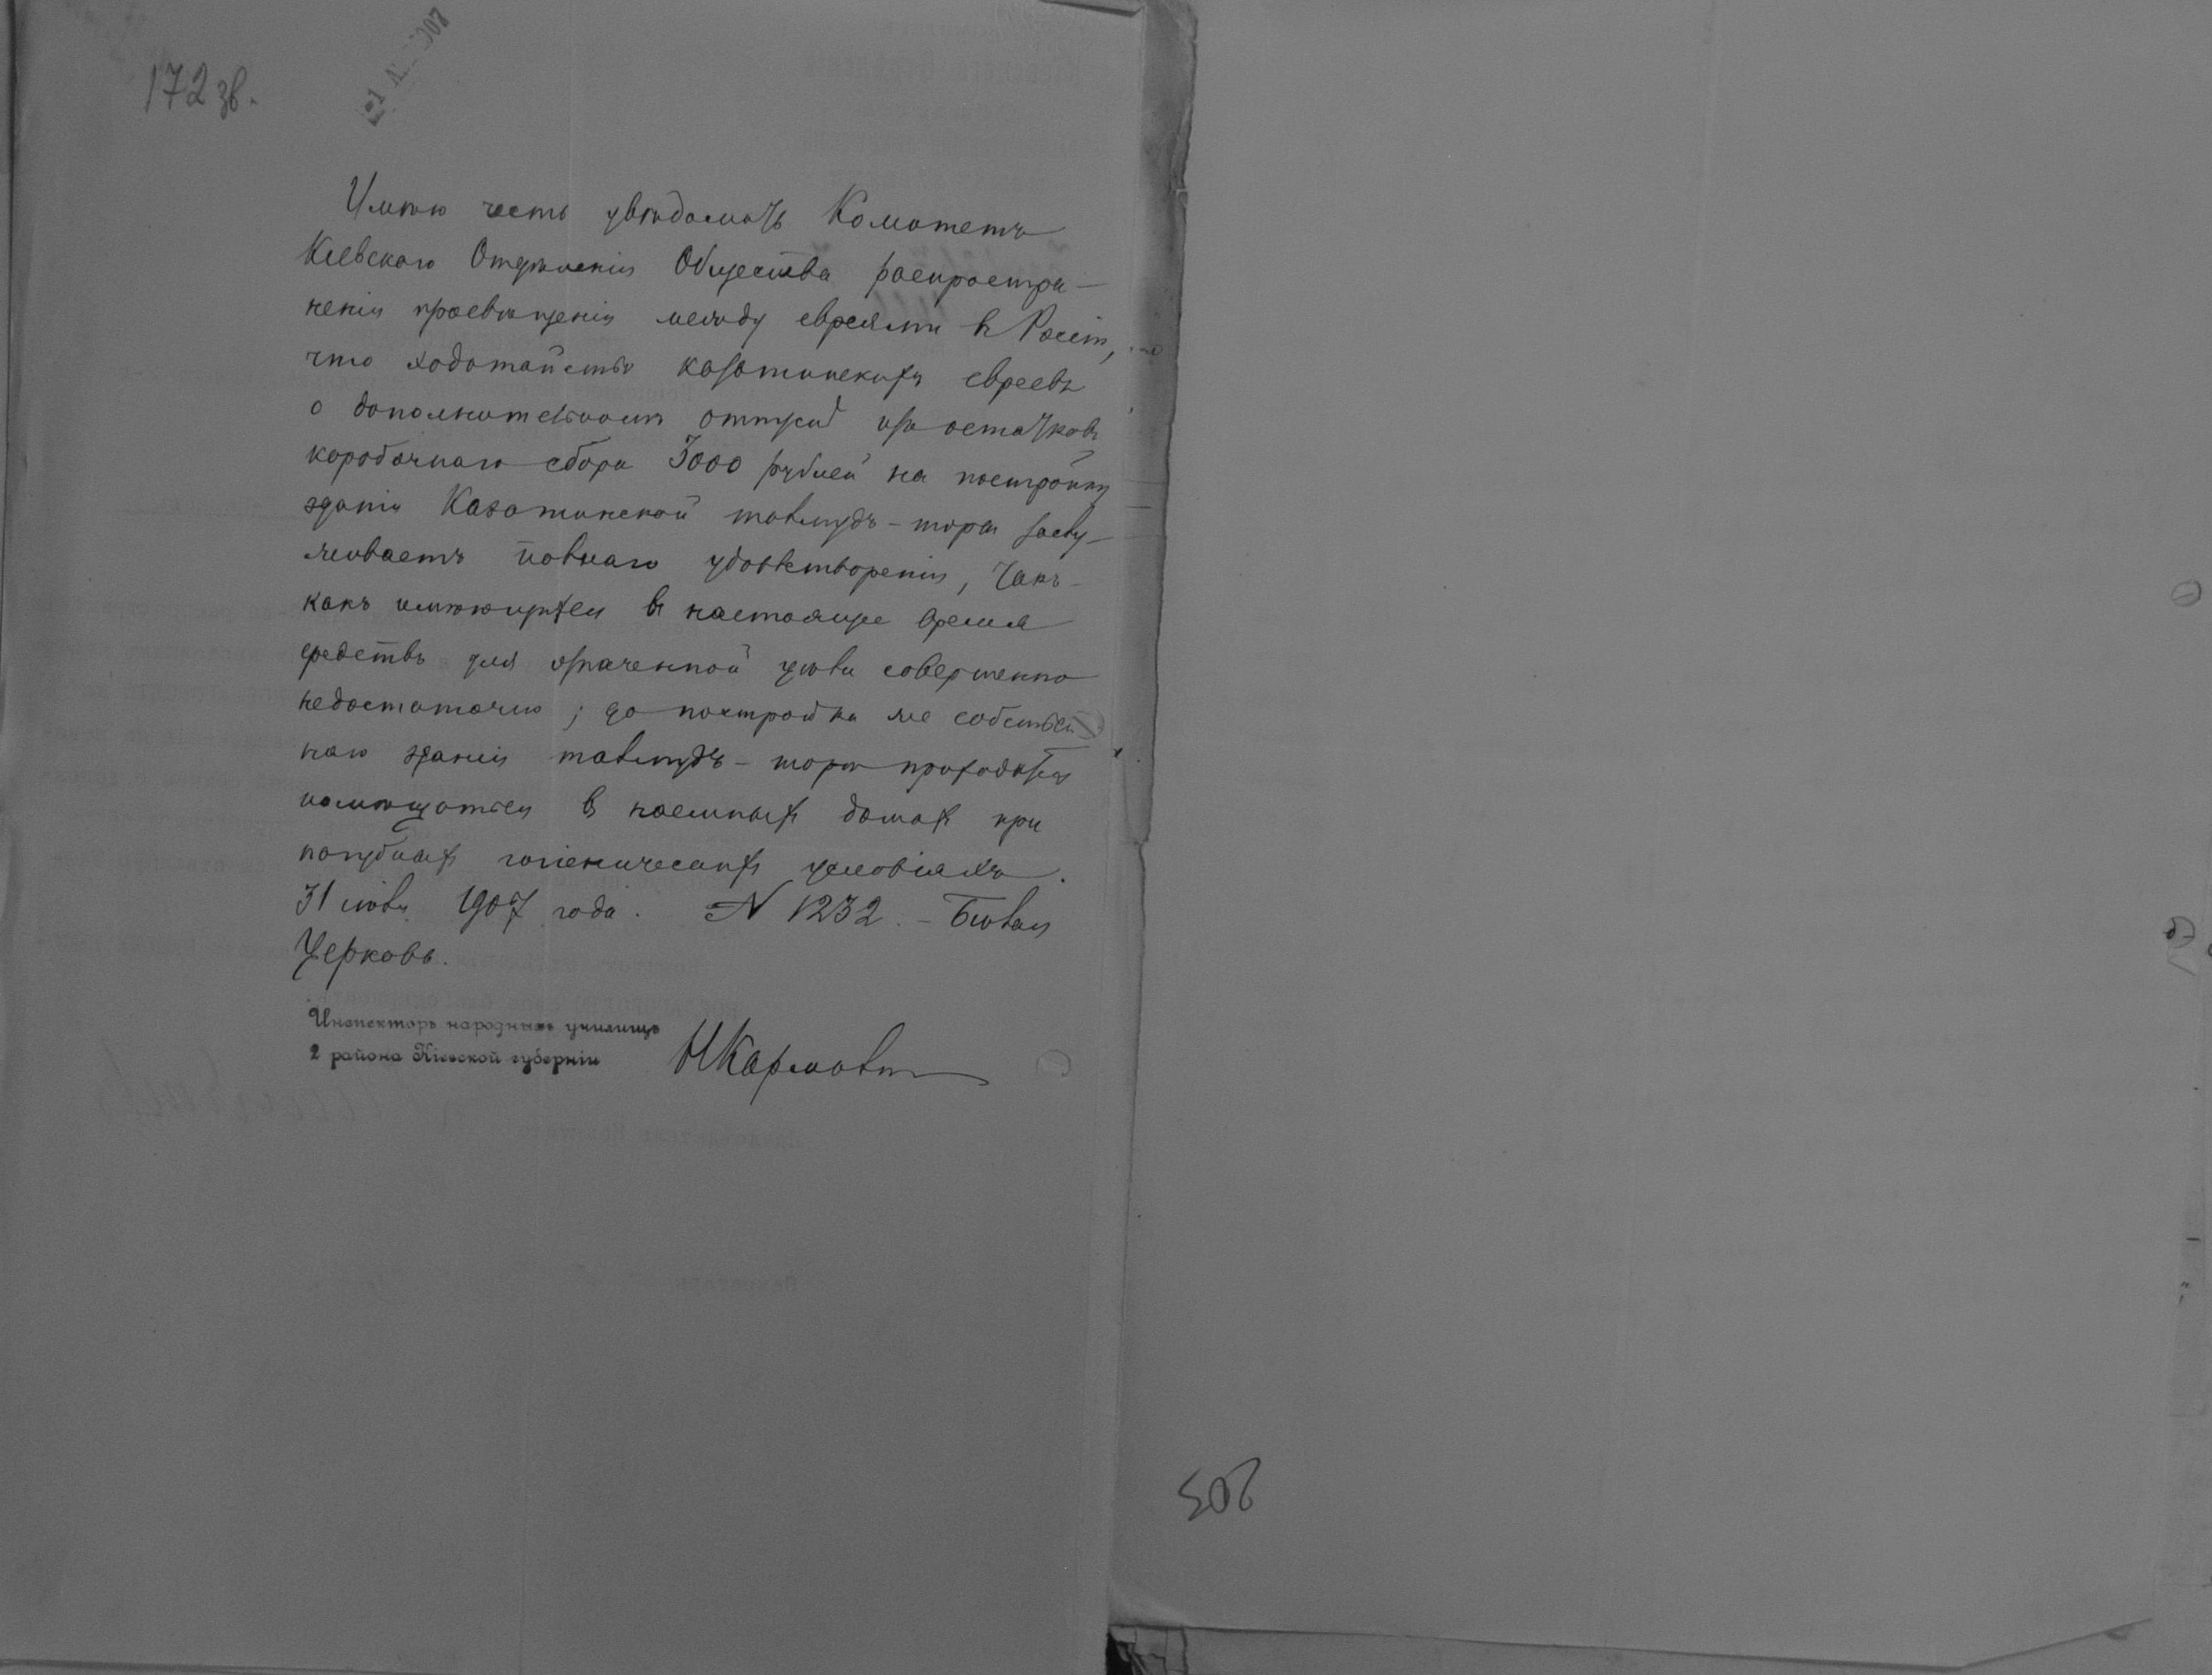 172 зв.
Имѣю честь увѣдомить Комитетъ
Кіевскаго Отдѣленія Общества распростра-
ненія просвѣщенія между евреями въ Россіи,
что ходатайство казатинскихъ евреевъ
о дополнительномъ отпускѣ изъ остатковъ
коробочнаго сбора 3000 рублей на постройку
зданія Казатинской талмудъ-торы заслу-
живаетъ полнаго удовлетворенія, такъ
какъ имѣющихся въ настоящее время
средствъ для означенной цѣли совершенно
недостаточно; до постройки же собствен
наго зданія талмудъ-торѣ приходится
помѣщаться въ наемныхъ домахъ при
пагубныхъ гигіеническихъ условіяхъ.
31 іюля 1907 года. N 1232. - Бѣлая
Церковь.
Инспекторъ народныхъ училищъ
2 района Кіевской губерніи
203